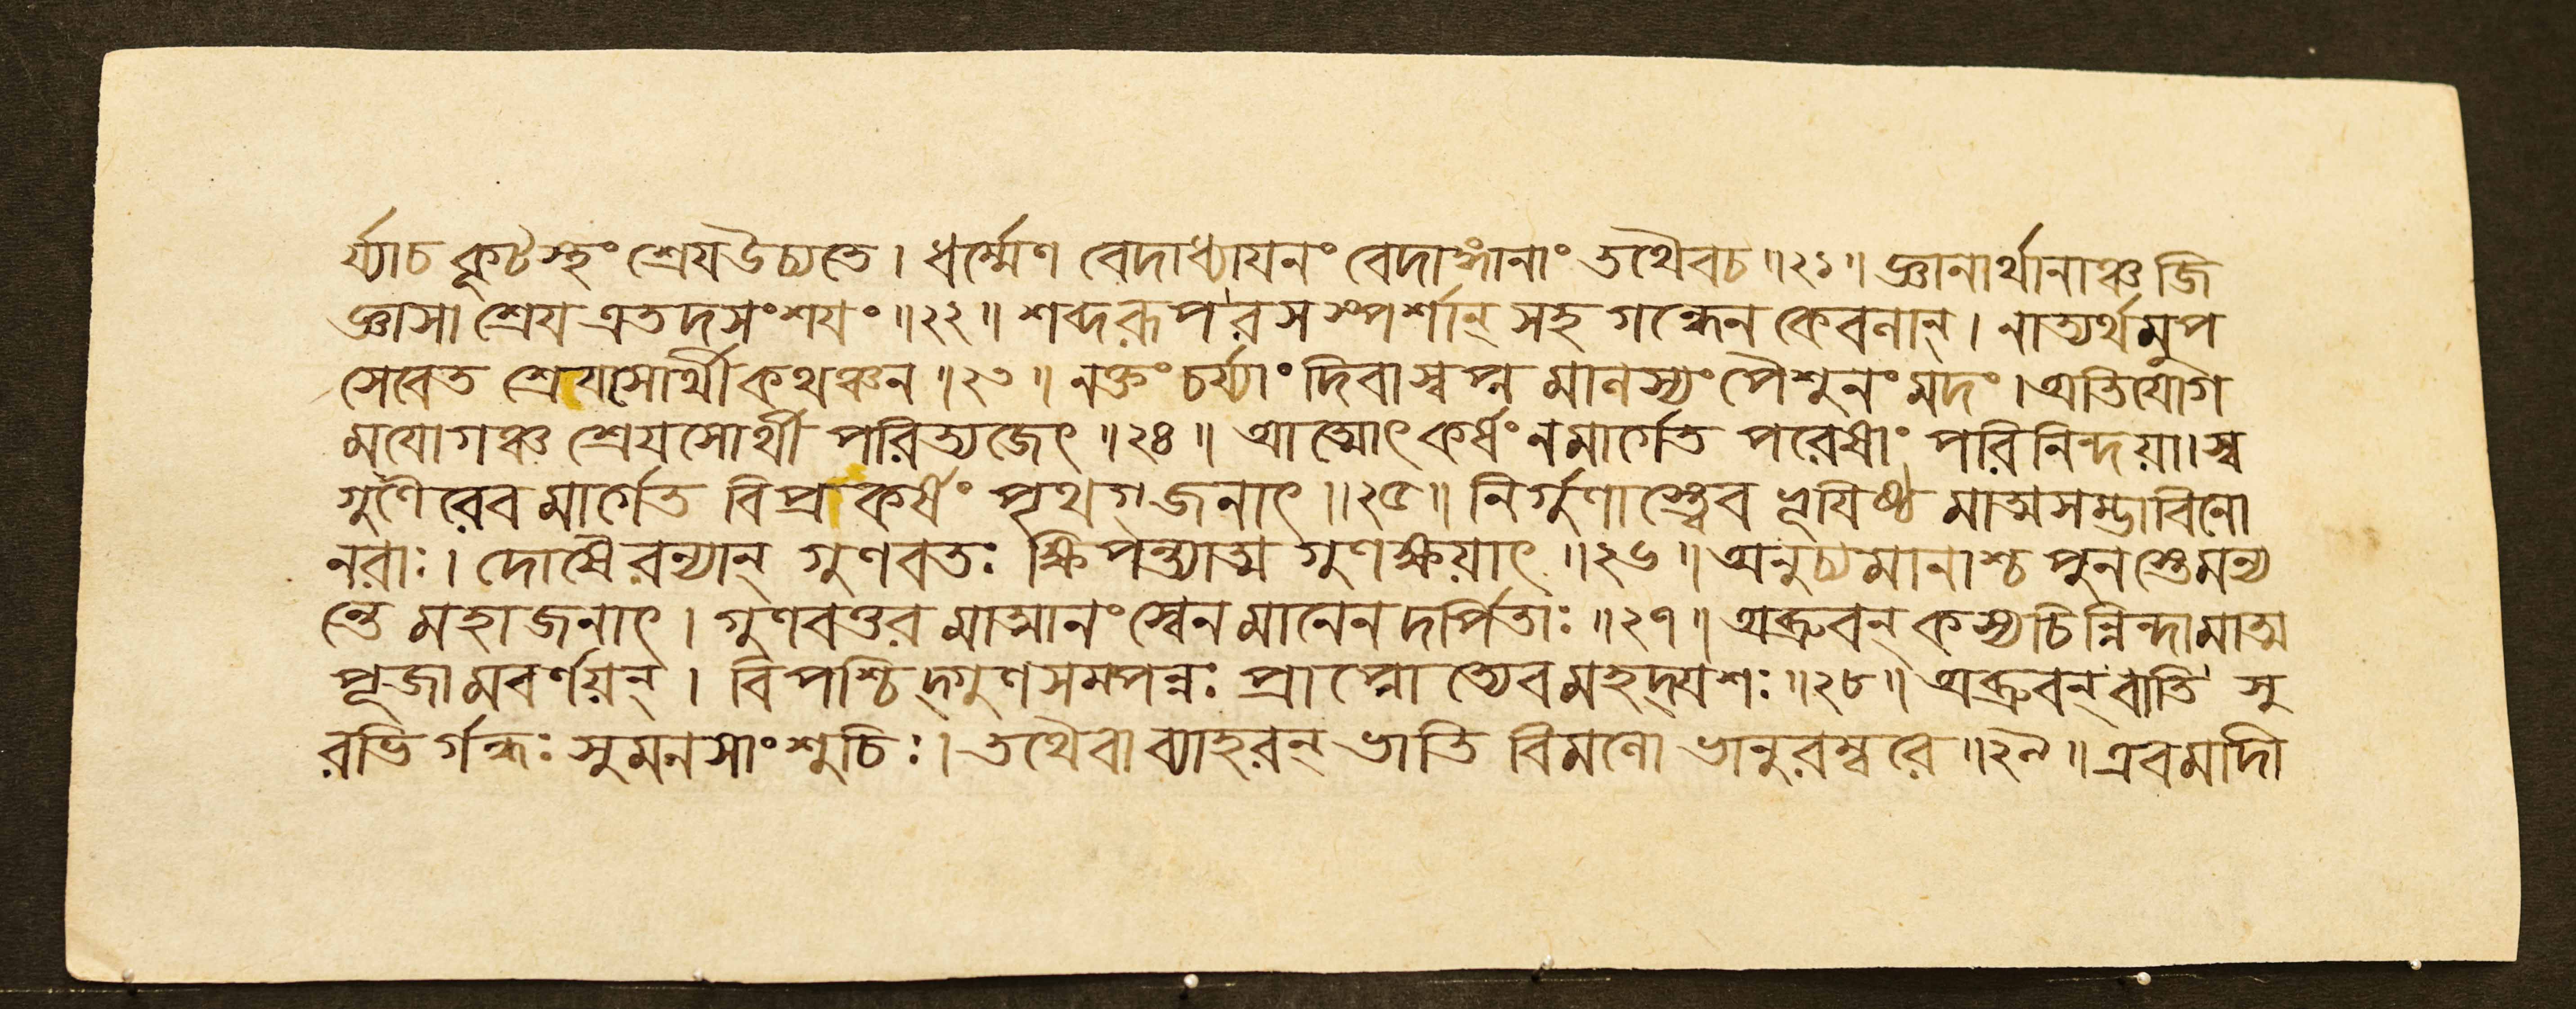 র্য্যাচ কূটস্থং শ্রেযউচ্যতে। ধর্ম্মেণ বেদাধ্যাযনং বেদাঙ্গানাং তথৈবচ॥২১॥ জ্ঞানার্থানাঞ্চ জি
জ্ঞাসা শ্রেয এতদসংশযঃ॥২২॥ শব্দরূপরসস্পর্শান্ সহ গন্ধেন কেবলান্। নাত্যর্থমুপ
সেবেত শ্রেযসোর্থী কথঞ্চন॥২৩॥ নক্তং চর্য্যাং দিবাস্বপ্ন মালস্যং পৈশুনং মদং। অতিযোগ
মযোগঞ্চ শ্রেযসোর্থী পরিত্যজেৎ॥২৪॥ আত্মোৎকর্ষং নমার্গেত পরেষাং পরিনিন্দয়া। স্ব
গুণৈরেব মার্গেত বিপ্রকর্ষং পৃথগ্জনাৎ॥২৫॥ নির্গুণাস্ত্বেব ভূযিষ্ঠ মাত্মসম্ভাবিনো
নরাঃ। দোষৈরন্যান্ গুণবতঃ ক্ষিপন্ত্যাত্ম গুণক্ষয়াৎ॥২৬॥ অনুচ্যমানাশ্চ পুনস্তেমন্য
ন্তে মহাজনাৎ। গুণবত্তর মাত্মানং স্বেন মানেন দর্পিতাঃ॥২৭॥ অব্রুবন্ কস্যচিন্নিন্দামাত্ম
পূজামবর্ণয়ন্। বিপশ্চিদ্গুণসমপন্নঃ প্রাপ্নোত্যেবমহদ্যশঃ॥২৮॥ অব্রুবন্ বাতি সু
রভির্গন্ধঃ সুমনসাং শুচিঃ। তথৈবাব্যাহরন্ ভাতি বিমলো ভানুরম্বরে॥২৯॥ এবমাদী